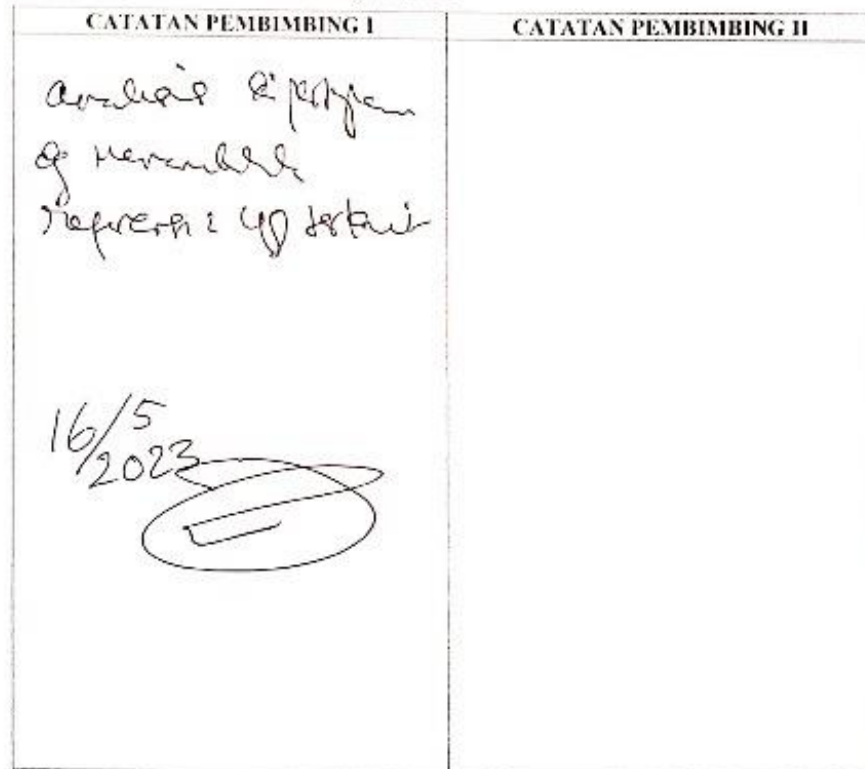 CATATAN PEMBIMBING I
CATATAN PEMBIMBING II
Analisis dipertajam
dg menambahkan
referensi2 yg terkait
16/5
2023